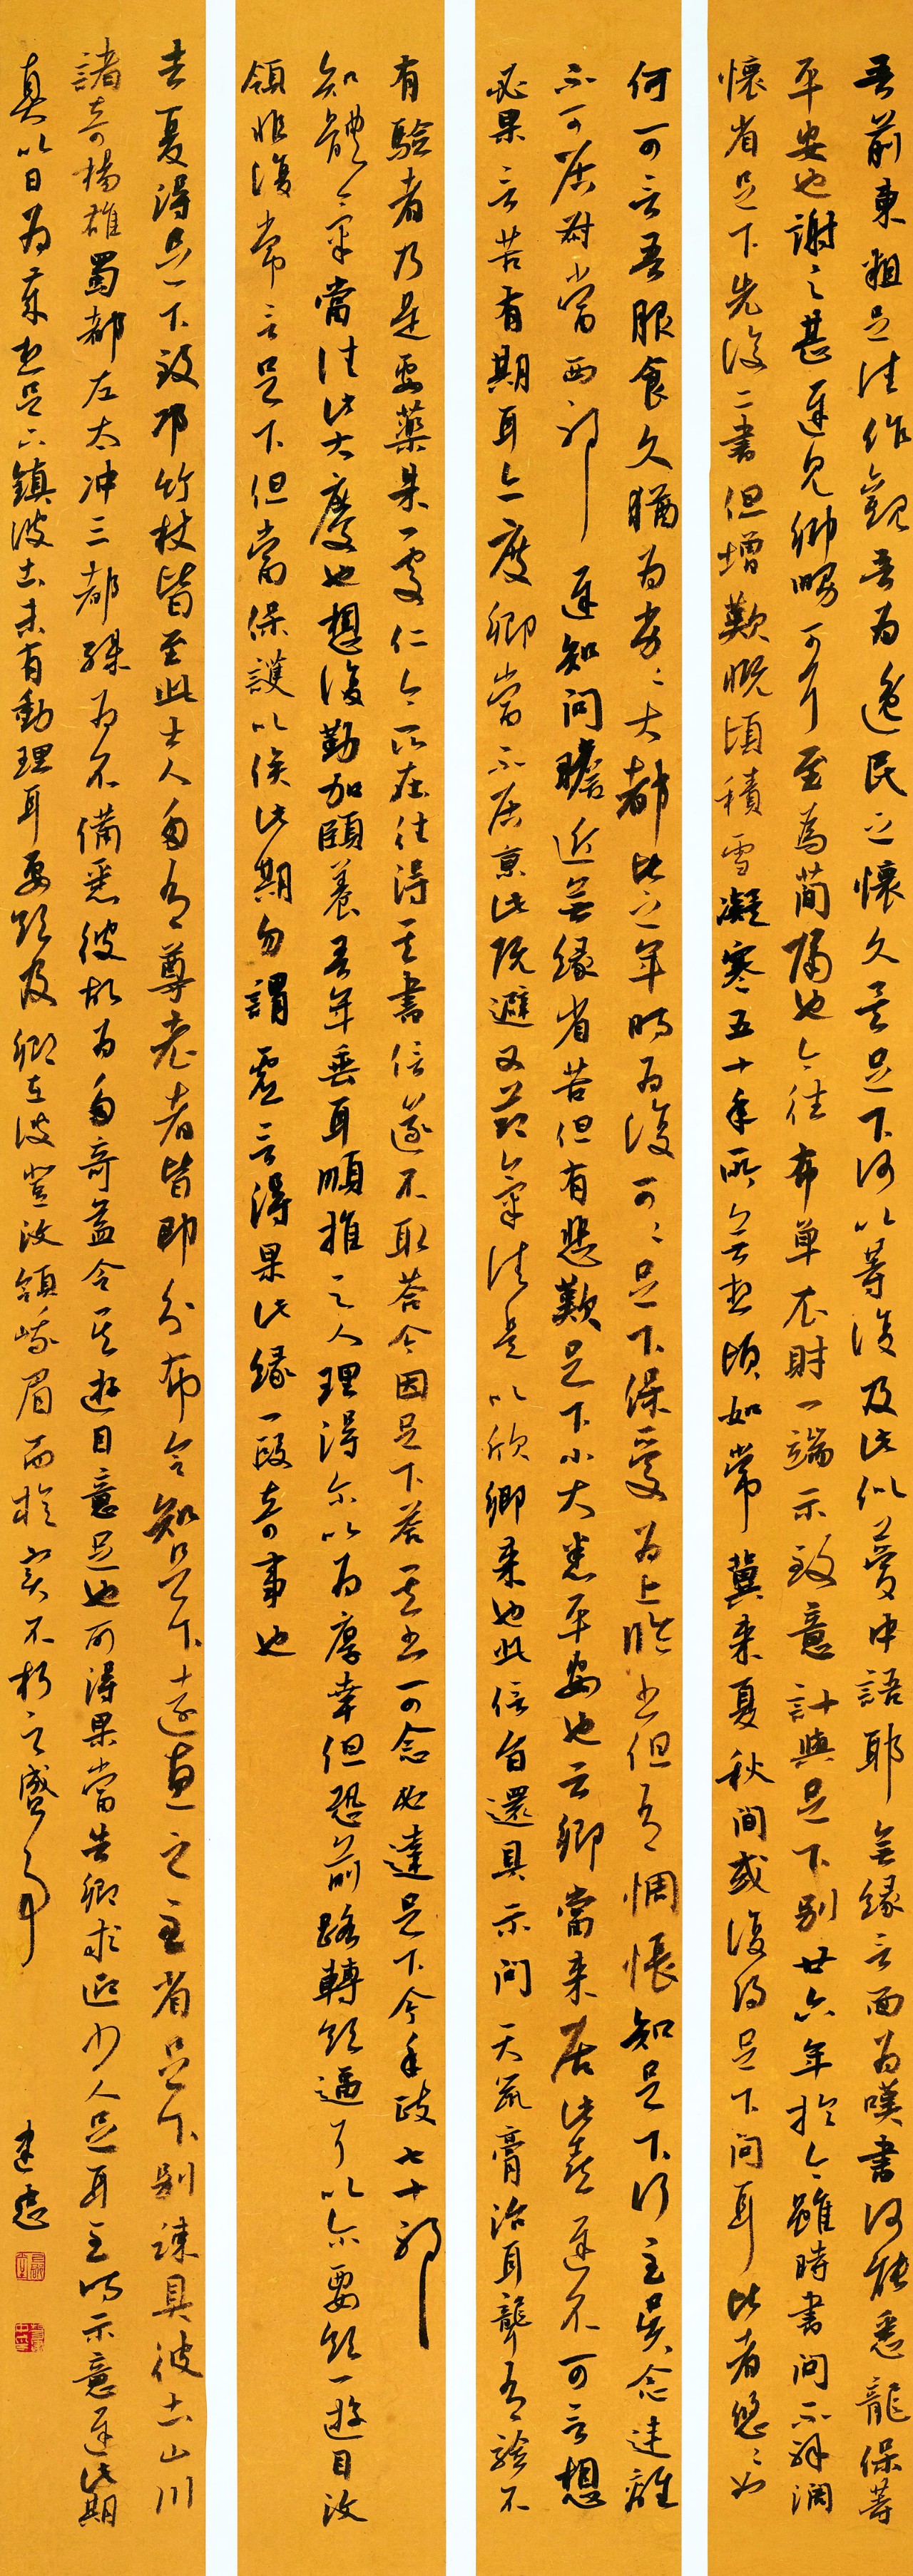 吾前東粗足作佳觀吾為逸民之懷久矣足下何以等復及此似夢中語耶無緣言面為嘆書何能悉龍保等
平安也謝之甚遲見卿舅可耳至為簡隔也今往布單衣財一端示致意計與足下別廿六年於今雖時書問不解闊
懷省足下先後二書但增歎慨頃積雪凝寒五十年所無想頃如常冀來夏秋間或復得足下問耳比者悠悠如
何可言吾服食久猶為劣劣大都比之年時為復可可足下保愛為上臨書但有惆悵知足下行至吳念違離
不可居叔當西耶遲知問瞻近無緣省苦但有悲歎足下小大悉平安也云卿當來居此喜遲不可言想
必果言苦有期耳亦度卿當不居京此既避又節氣佳是以欣卿來也此信旨還具示問天鼠膏治耳聾有驗不
有驗者乃是要藥朱處仁今所在往得其書信遂不取答今因足下答其書可令必達足下今年政七十耶
知體氣常佳此大慶也想復勤加頤養吾年垂耳順推之人理得爾以為厚幸但恐前路轉欲逼耳以爾要欲一遊目汶
領非復常言足下但當保護以俟此期勿謂虛言得果此緣一段奇事也
去夏得足下致邛竹杖皆至此士人多有尊老者皆即分布令知足下遠惠之至省足下別疏具彼土山川
諸奇楊雄蜀都左太沖三都殊為不備悉彼故為多奇益令其遊目意足也可得果當告卿求迎少人足耳至時示意遲此期
真以日為歲想足下鎮彼土未有動理耳要欲及卿在彼登汶領峨眉而旋實不朽之盛事
建忠